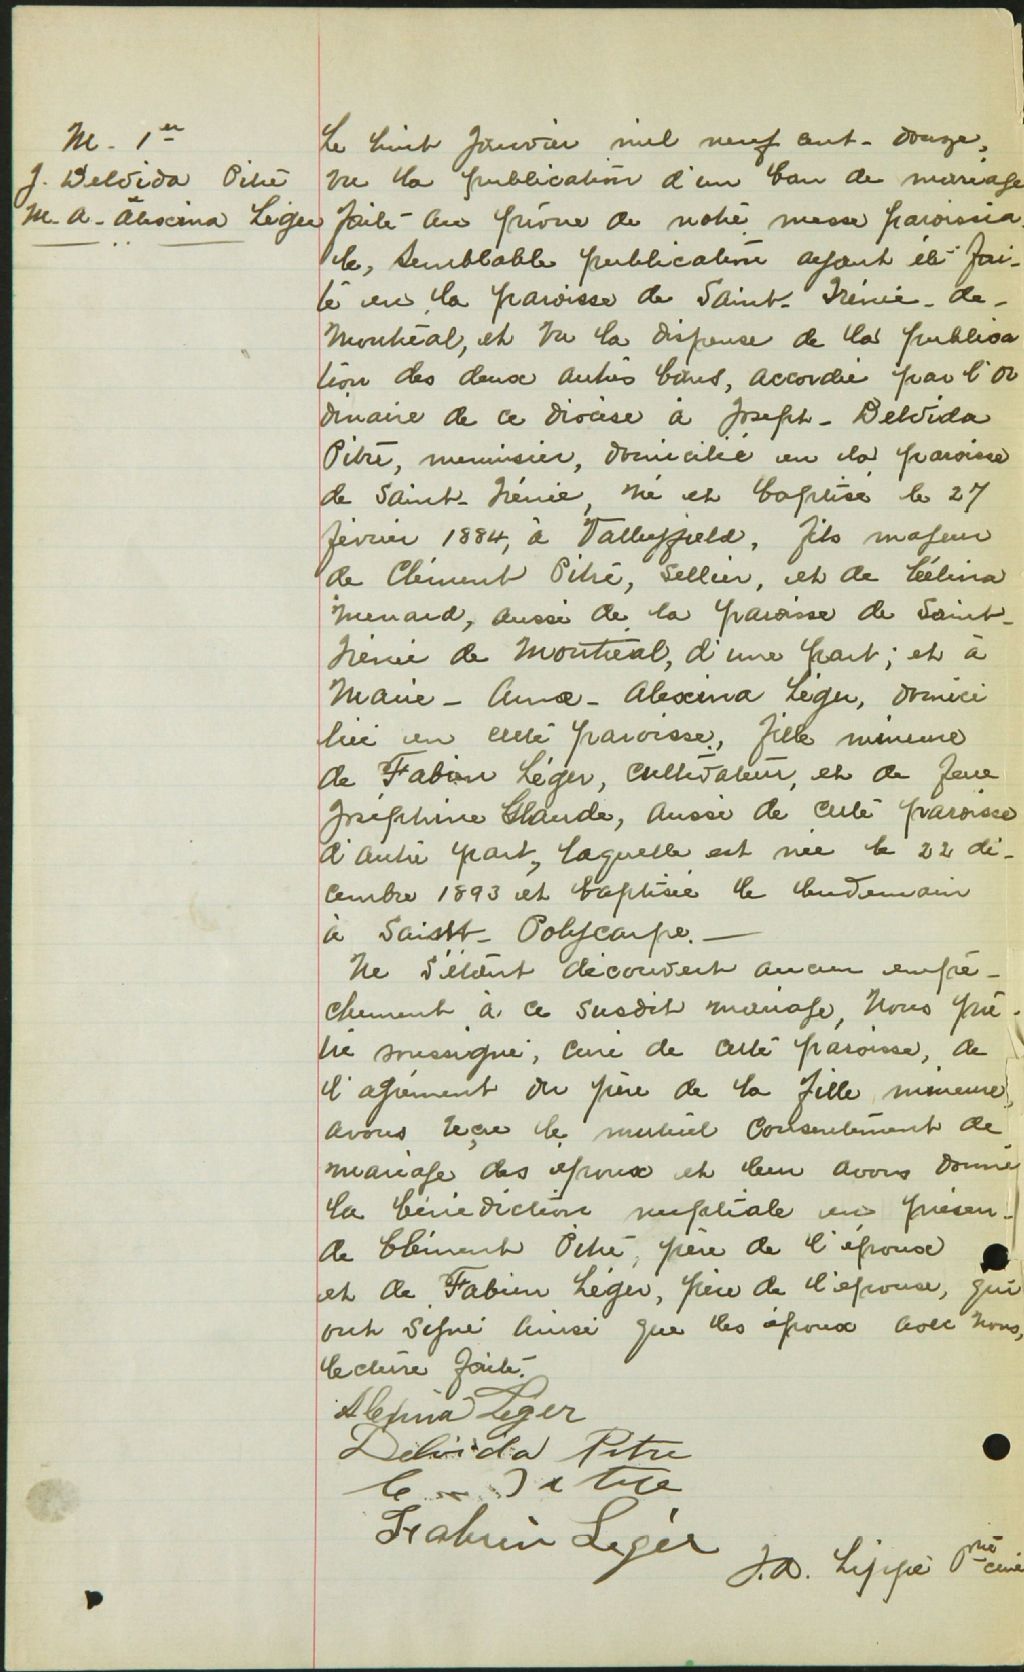 M. 1er
J. Delvida Pitre
M.-A.-Alexina Léger
Le huit Janvier mil neuf cent-douze,
vu la publication d'un ban de mariage
faite au prône de notre messe paroissia-
le, semblable publication ayant été fai-
te en la paroisse de Saint-Irénée-de-
Montréal, et vu la dispense de la publica
tion des deux autres bans, accordée par l'or
dinaire de ce diocèse à Joseph-Delvida
Pitre, menuisier, domicilié en la paroisse
de Saint-Irénée, né et baptisé le 27
février 1884, à Valleyfield, fils majeur
de Clément Pitre, sellier, et de Célina
Menard, aussi de la paroisse de Saint-
Irénée de Montréal, d'une part; et à
Marie-Anne-Alexina Léger, domici
liée en cette paroisse, fille mineure
de Fabien Léger, cultivateur, et de feue
Joséphine Glaude, aussi de cette paroisse
d'autre part, laquelle est née le 22 dé-
cembre 1893 et baptisée le lendemain
à Saint-Polycarpe.—
Ne s'étant découvert aucun empê-
chement à ce susdit mariage, Nous prê-
tre soussigné, curé de cette paroisse, de
l'agrément du père de la fille mineure,
avons reçu le mutuel consentement de
mariage des époux et leur avons donné
la bénédiction nuptiale en présen-
de Clément Pitre, père de l'époux
et de Fabien Léger, père de l'épouse, qui
ont signé ainsi que les époux avec Nous,
lecture faite.
Alexina Léger
Delvida Pitre
Pitre
Fabien Léger
J.A. Lippé ptre curé